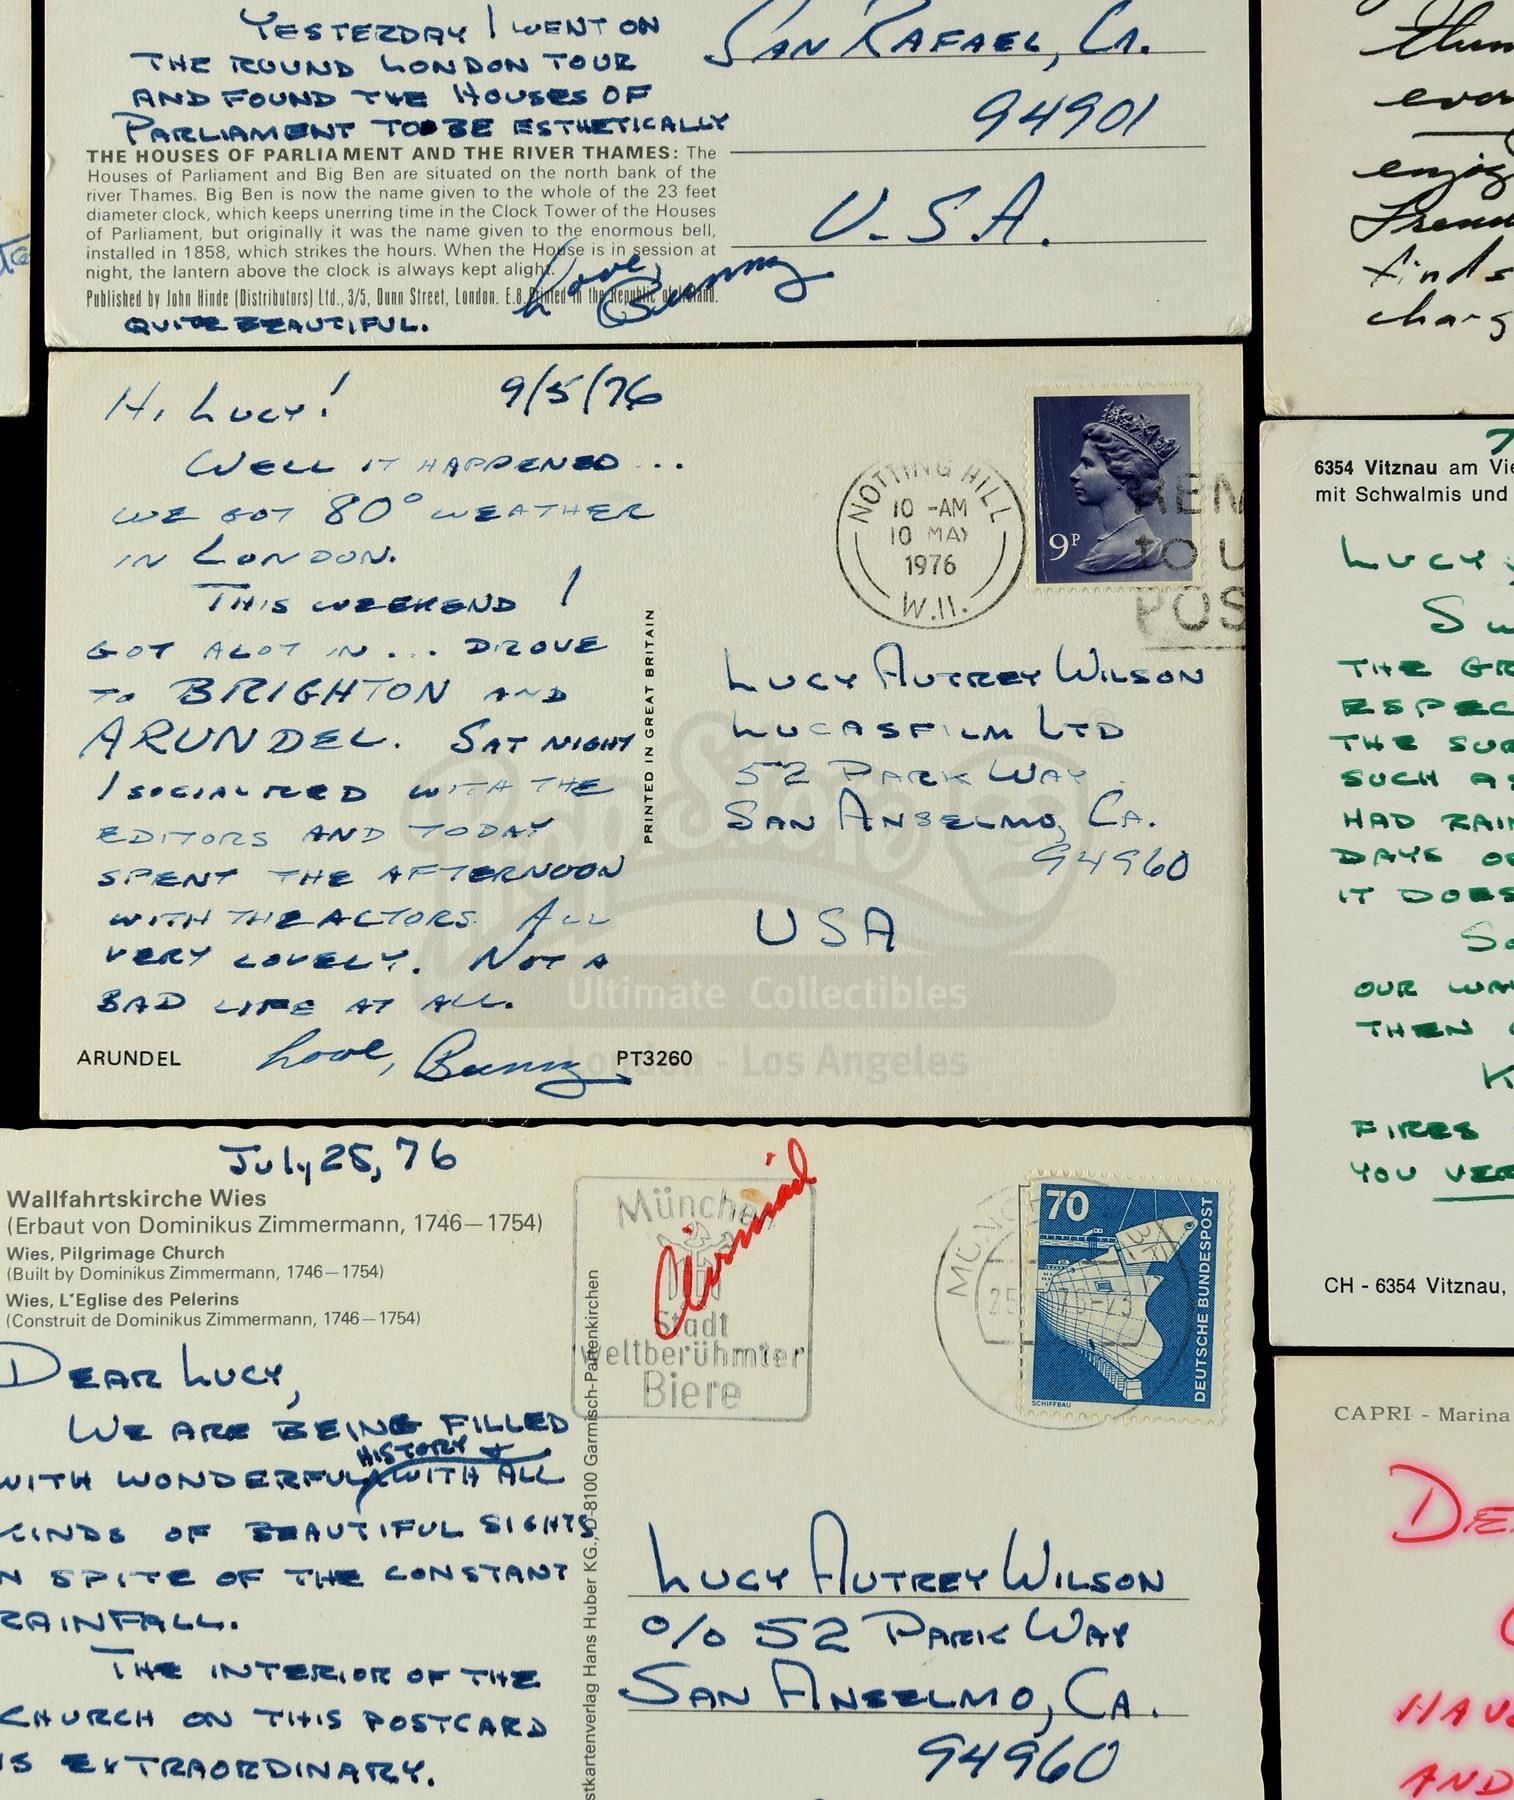 YESTERDAY I WENT ON
THE ROUND LONDON TOUR
AND FOUND THE HOUSES OF
PARLIAMENT TO BE ESTHETICALLY
THE HOUSES OF PARLIAMENT AND THE RIVER THAMES: The
Houses of Parliament and Big Ben are situated on the north bank of the
river Thames. Big Ben is now the name given to the whole of the 23 feet
diameter clock, which keeps unerring time in the Clock Tower of the Houses
of Parliament, but originally it was the name given to the enormous bell,
installed in 1858, which strikes the hours. When the House is in session at
night, the lantern above the clock is always kept alight.
Published by John Hinde (Distributors) Ltd., 3/5, Dunn Street, London. E.8. Printed in the Republic of Ireland.
QUITE BEAUTIFUL.
Love, Bunny
SAN RAFAEL, CA.
94901
U.S.A.
HI LUCY! 9/5/76
WELL IT HAPPENED...
WE GOT 80° WEATHER
IN LONDON.
THIS WEEKEND!
GOT ALOT IN... DROVE
TO BRIGHTON AND
ARUNDEL. SAT NIGHT
I SOCIALIZED WITH THE
EDITORS AND TODAY
SPENT THE AFTERNOON
WITH THE ACTORS. ALL
VERY LOVELY. NOT A
BAD LIFE AT ALL.
Love, Bunny
ARUNDEL PT3260
PRINTED IN GREAT BRITAIN
NOTTING HILL
10 -AM
10 MAY
1976
W.11.
9P
REM
TO U
POS
LUCY AUTREY WILSON
LUCASFILM LTD
52 PARK WAY
SAN ANSELMO, CA.
94960
USA
PropStore
Ultimate Collectibles
London - Los Angeles
July 25, 76
Wallfahrtskirche Wies
(Erbaut von Dominikus Zimmermann, 1746—1754)
Wies, Pilgrimage Church
(Built by Dominikus Zimmermann, 1746—1754)
Wies, L'Eglise des Pelerins
(Construit de Dominikus Zimmermann, 1746—1754)
DEAR LUCY,
WE ARE BEING FILLED
WITH WONDERFUL HISTORY + WITH ALL
KINDS OF BEAUTIFUL SIGHTS
IN SPITE OF THE CONSTANT
RAINFALL.
THE INTERIOR OF THE
CHURCH ON THIS POSTCARD
IS EXTRAORDINARY.
München
Stadt
Weltberühmter
Biere
Airmail
stkartenverlag Hans Huber KG., D-8100 Garmisch-Partenkirchen
70
DEUTSCHE BUNDESPOST
SCHIFFBAU
LUCY AUTREY WILSON
c/o 52 PARK WAY
SAN ANSELMO, CA.
94960
enjoy
finds
charg
6354 Vitznau am Vie
mit Schwalmis und
LUCY,
SW
THE GR
ESPEC
THE SUR
SUCH AS
HAD RAIN
DAYS O
IT DOES
SO
OUR WAY
THEN
K
FIRES
YOU VER
CH - 6354 Vitznau,
CAPRI - Marina
DE
HAV
AND